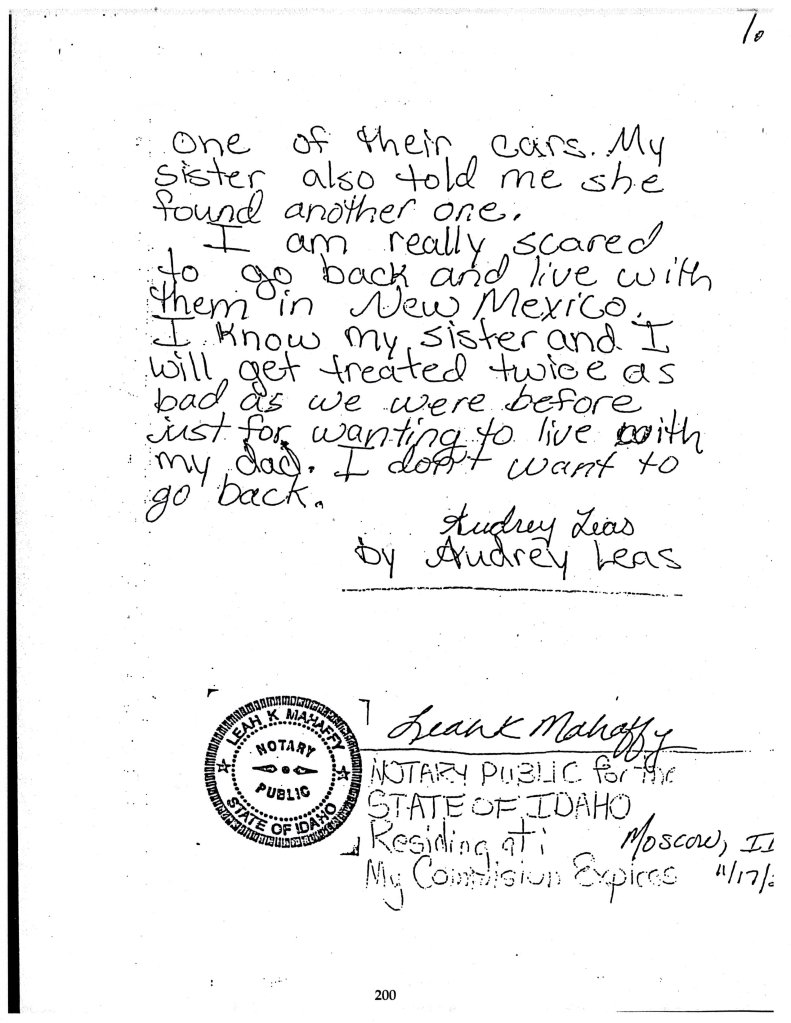 10
one of their cars. My
sister also told me she
found another one.
I am really scared
to go back and live with
them in New Mexico.
I know my sister and I
will get treated twice as
bad as we were before
just for wanting to live with
my dad. I don't want to
go back.
Audrey Leas
by Audrey Leas
LEAH K MAHAFFY
NOTARY
PUBLIC
STATE OF IDAHO
Leah K Mahaffy
NOTARY PUBLIC for the
STATE OF IDAHO
Residing at: Moscow, I
My Commision Expires 11/17/
200